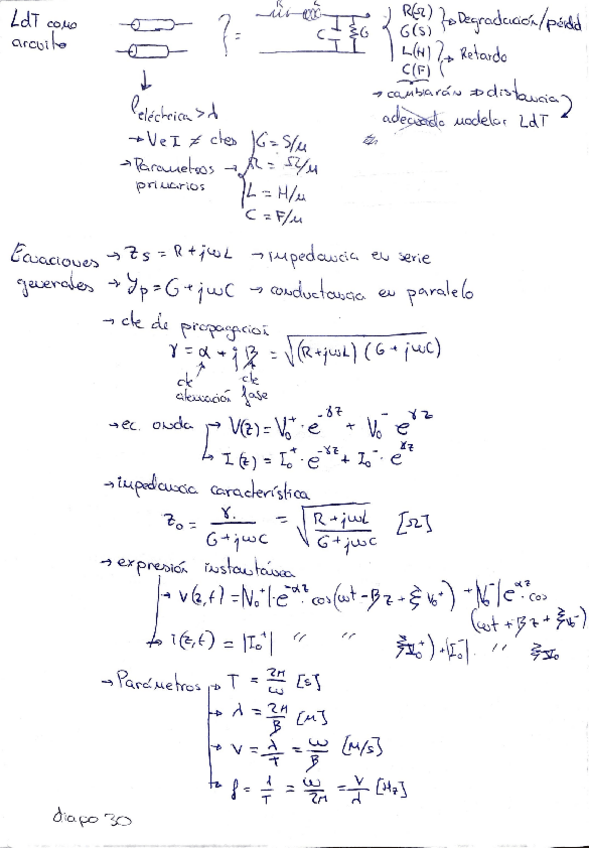 LdT como circuito
? =
R L C G
R(Ω)
G(S) } → Degradación/pérdid
L(H)
C(F) } → Retardo
→ cambiarán → distancia
adecuado modelar LdT
l eléctrica > λ
→ V e I ≠ ctes
→ Parámetros primarios →
G = S/m
R = Ω/m
L = H/m
C = F/m
Ecuaciones generales
→ Zs = R + jωL → impedancia en serie
→ Yp = G + jωC → conductancia en paralelo
→ cte de propagación
γ = α + jβ = √(R+jωL)(G+jωC)
cte atenuación
cte fase
→ ec. onda
→ V(z) = V₀⁺·e^-γz + V₀⁻ e^γz
→ I(z) = I₀⁺·e^-γz + I₀⁻·e^γz
→ impedancia característica
Z₀ = γ / (G+jωC) = √((R+jωL)/(G+jωC)) [Ω]
→ expresión instantánea
→ v(z,t) = |V₀⁺|·e^-αz·cos(ωt - βz + ξV₀⁺) + |V₀⁻|e^αz·cos
(ωt + βz + ξV₀⁻)
→ i(z,t) = |I₀⁺| " " ξI₀⁺) + |I₀⁻|. " ξI₀
→ Parámetros
→ T = 2π/ω [s]
→ λ = 2π/β [m]
→ v = λ/T = ω/β [m/s]
→ f = 1/T = ω/2π = v/λ [Hz]
diapo 30